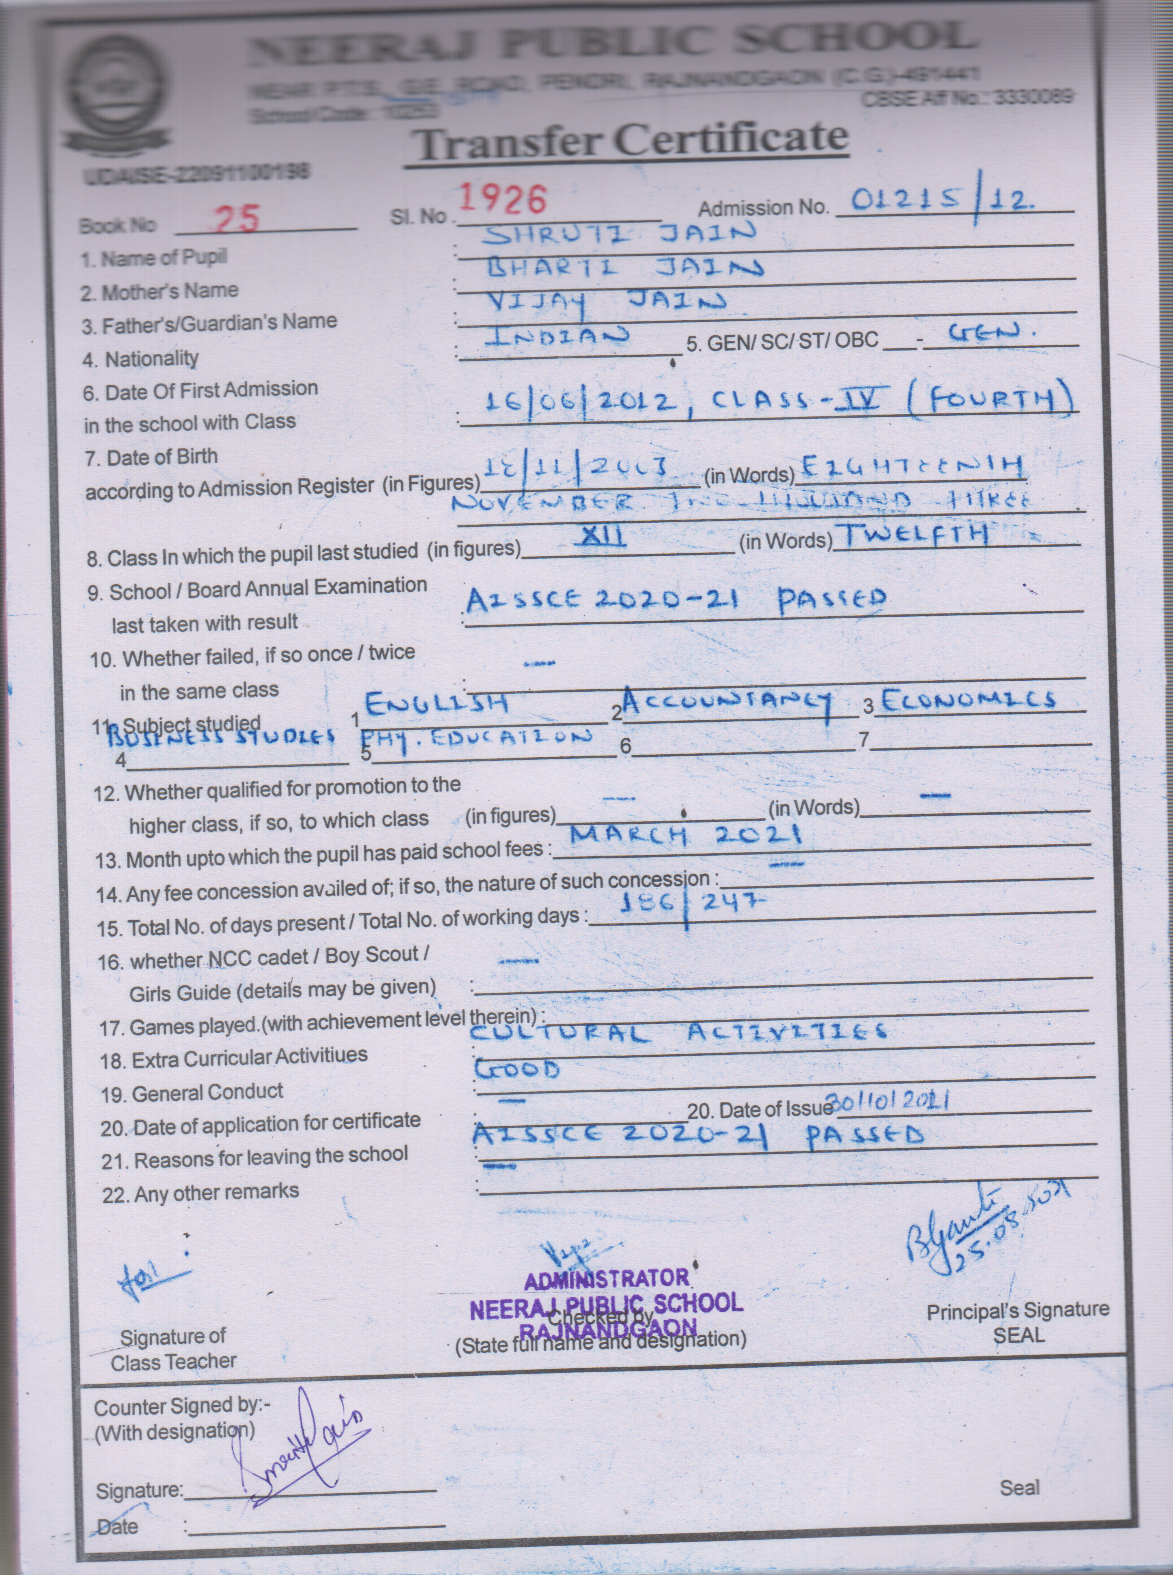 NEERAJ PUBLIC SCHOOL
NEAR P.T.S., G.E. ROAD, PENDRI, RAJNANDGAON (C.G.)-491441
School Code : 10253 CBSE Aff No.: 3330089
Transfer Certificate
UDAISE-22091100198
Book No 25 Sl. No. 1926 Admission No. 01215/12.
1. Name of Pupil : SHRUTI JAIN
2. Mother's Name : BHARTI JAIN
3. Father's/Guardian's Name : VIJAY JAIN
4. Nationality : INDIAN 5. GEN/ SC/ ST/ OBC - GEN.
6. Date Of First Admission
in the school with Class : 16/06/2012, CLASS-IV (FOURTH)
7. Date of Birth
according to Admission Register (in Figures) 18/11/2003 (in Words) EIGHTEENTH
NOVEMBER TWO THOUSAND THREE
8. Class In which the pupil last studied (in figures) XII (in Words) TWELFTH
9. School / Board Annual Examination
last taken with result : AISSCE 2020-21 PASSED
10. Whether failed, if so once / twice
in the same class : —
11. Subject studied 1 ENGLISH 2 ACCOUNTANCY 3 ECONOMICS
4 BUSINESS STUDIES 5 PHY. EDUCATION 6 7
12. Whether qualified for promotion to the
higher class, if so, to which class (in figures) — (in Words) —
13. Month upto which the pupil has paid school fees : MARCH 2021
14. Any fee concession availed of; if so, the nature of such concession : —
15. Total No. of days present / Total No. of working days : 186/247
16. whether NCC cadet / Boy Scout /
Girls Guide (details may be given) : —
17. Games played.(with achievement level therein) :
18. Extra Curricular Activitiues : CULTURAL ACTIVITIES
19. General Conduct : GOOD
20. Date of application for certificate : — 20. Date of Issue 30/10/2021
21. Reasons for leaving the school : AISSCE 2020-21 PASSED
22. Any other remarks : —
25.08.2021
ADMINISTRATOR
NEERAJ PUBLIC SCHOOL
RAJNANDGAON
Checked by
(State full name and designation)
Principal's Signature
SEAL
Signature of
Class Teacher
Counter Signed by:-
(With designation)
Signature:
Seal
Date :